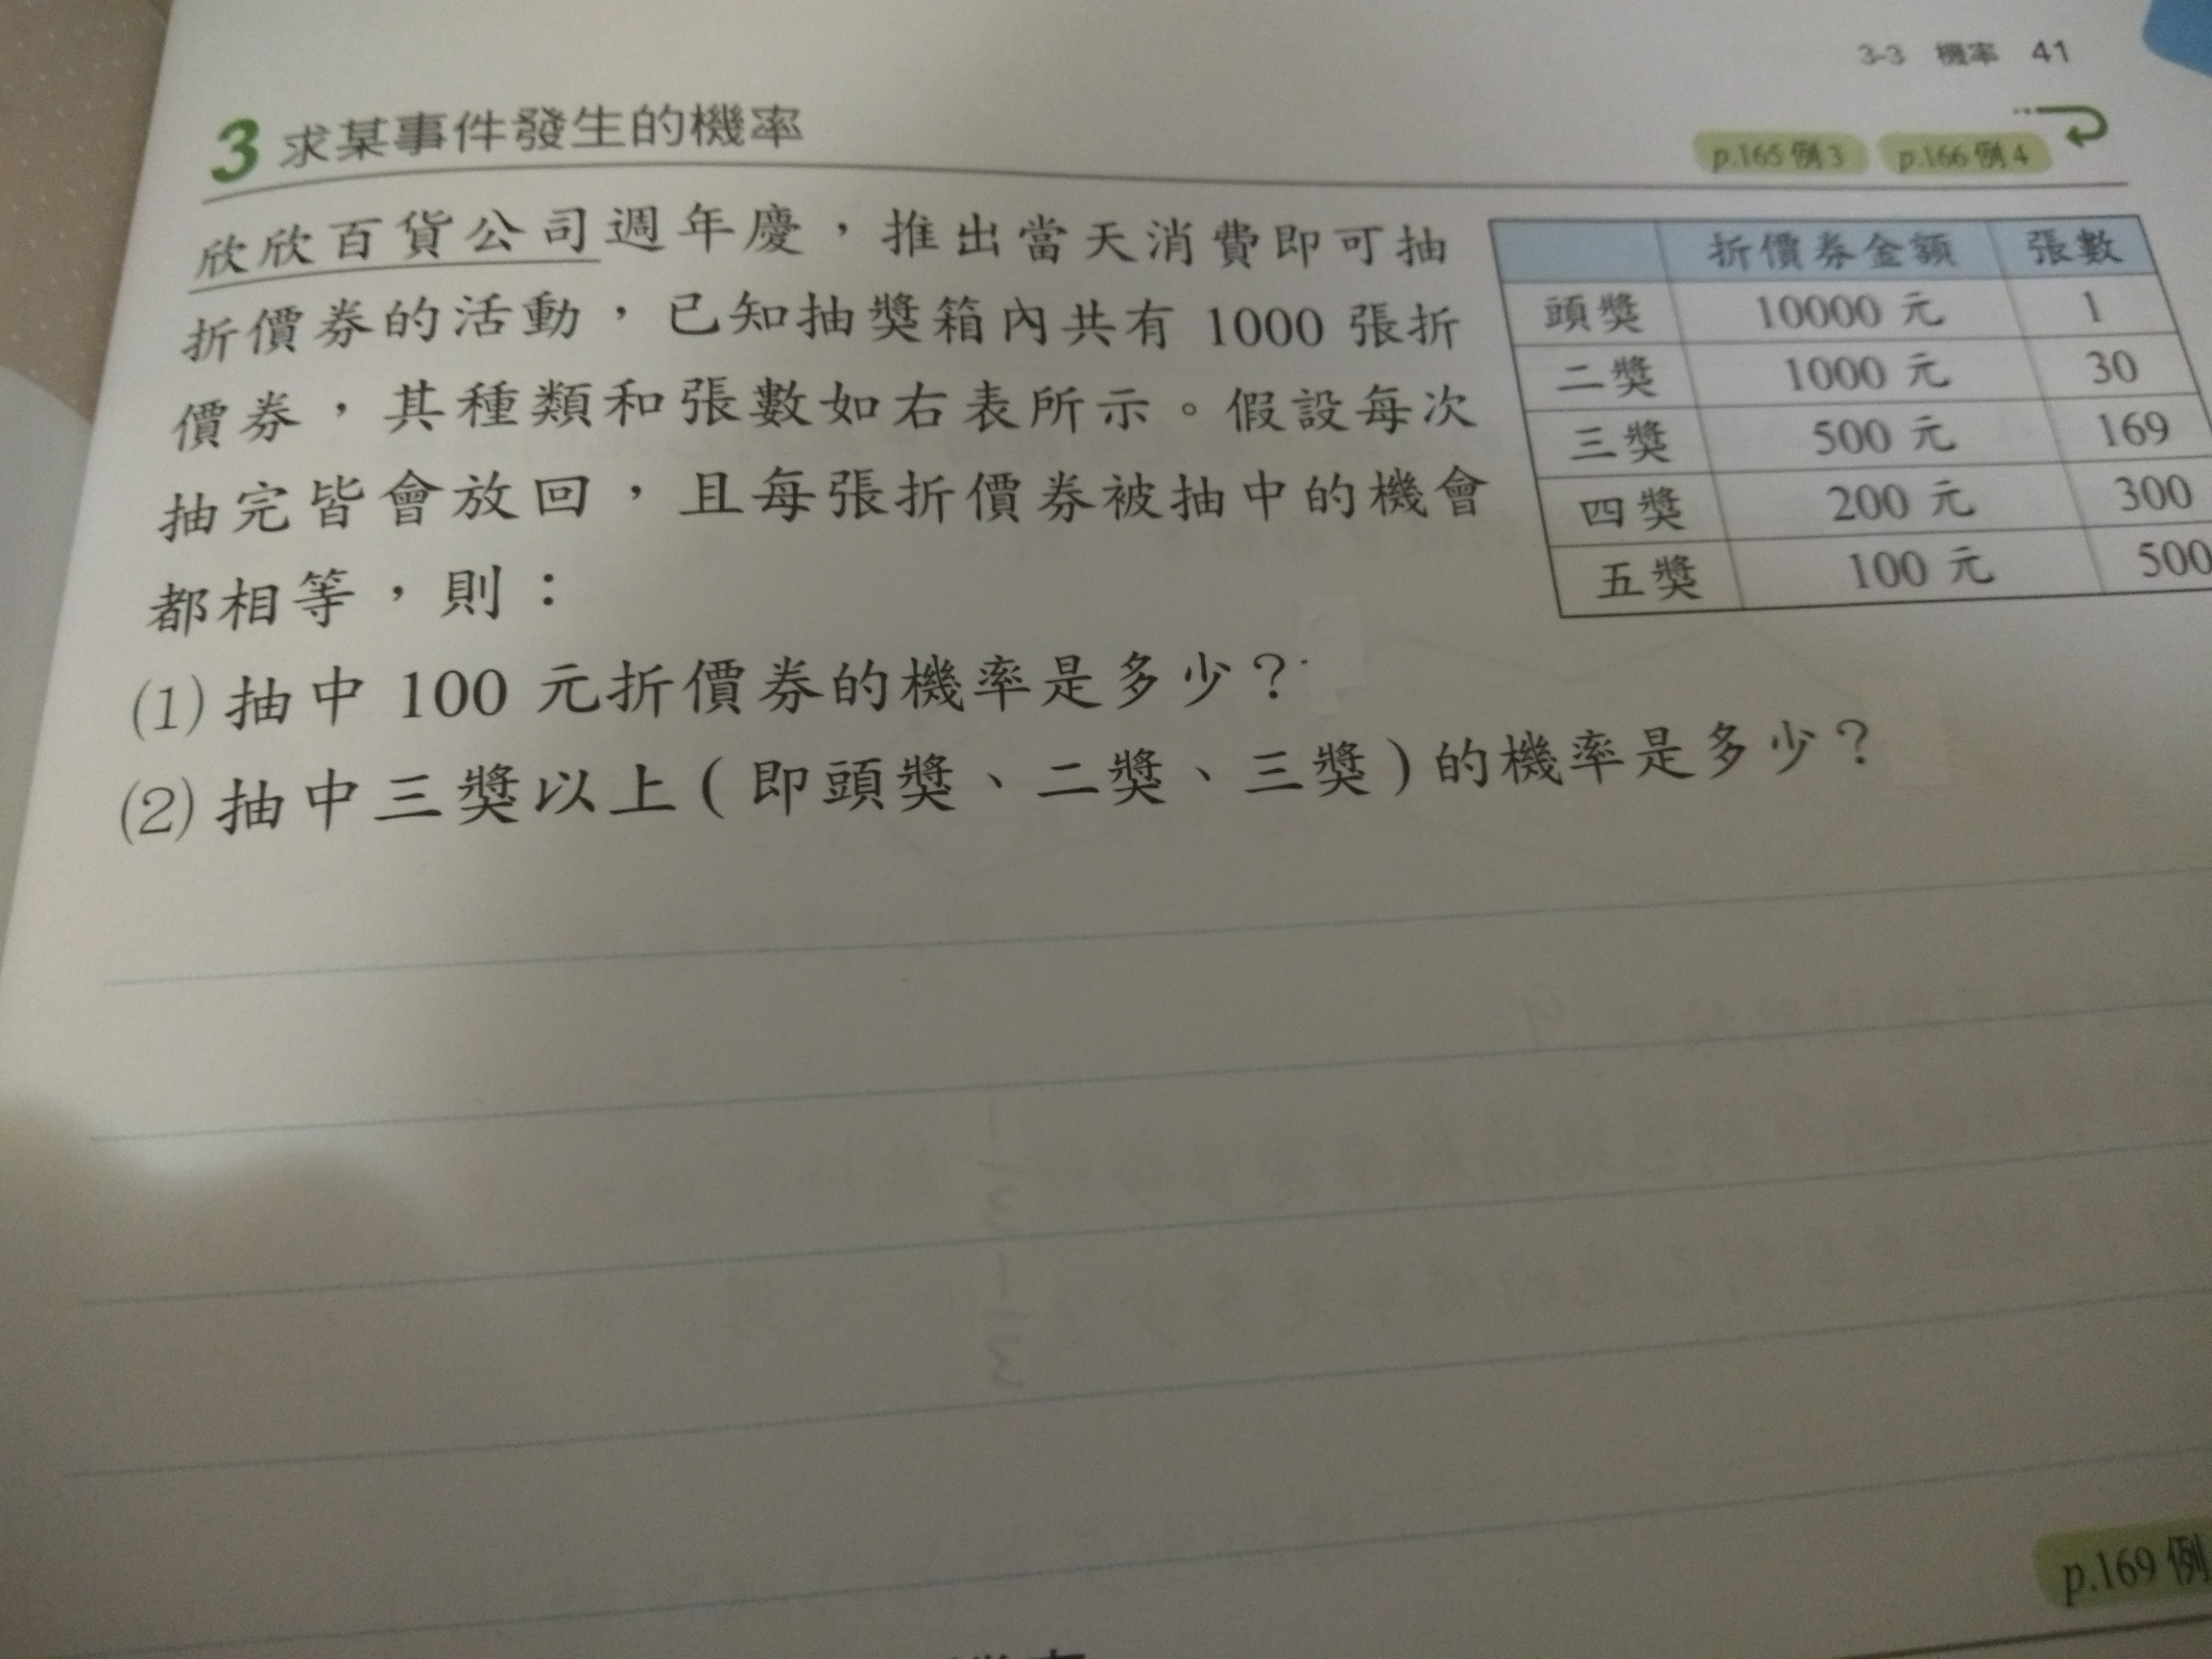 3-3 機率 41
3 求某事件發生的機率
p.165 例3 p.166 例4
欣欣百貨公司週年慶，推出當天消費即可抽
折價券的活動，已知抽獎箱內共有 1000 張折
價券，其種類和張數如右表所示。假設每次
抽完皆會放回，且每張折價券被抽中的機會
都相等，則：
折價券金額 張數
頭獎 10000 元 1
二獎 1000 元 30
三獎 500 元 169
四獎 200 元 300
五獎 100 元 500
(1) 抽中 100 元折價券的機率是多少？
(2) 抽中三獎以上（即頭獎、二獎、三獎）的機率是多少？
p.169 例